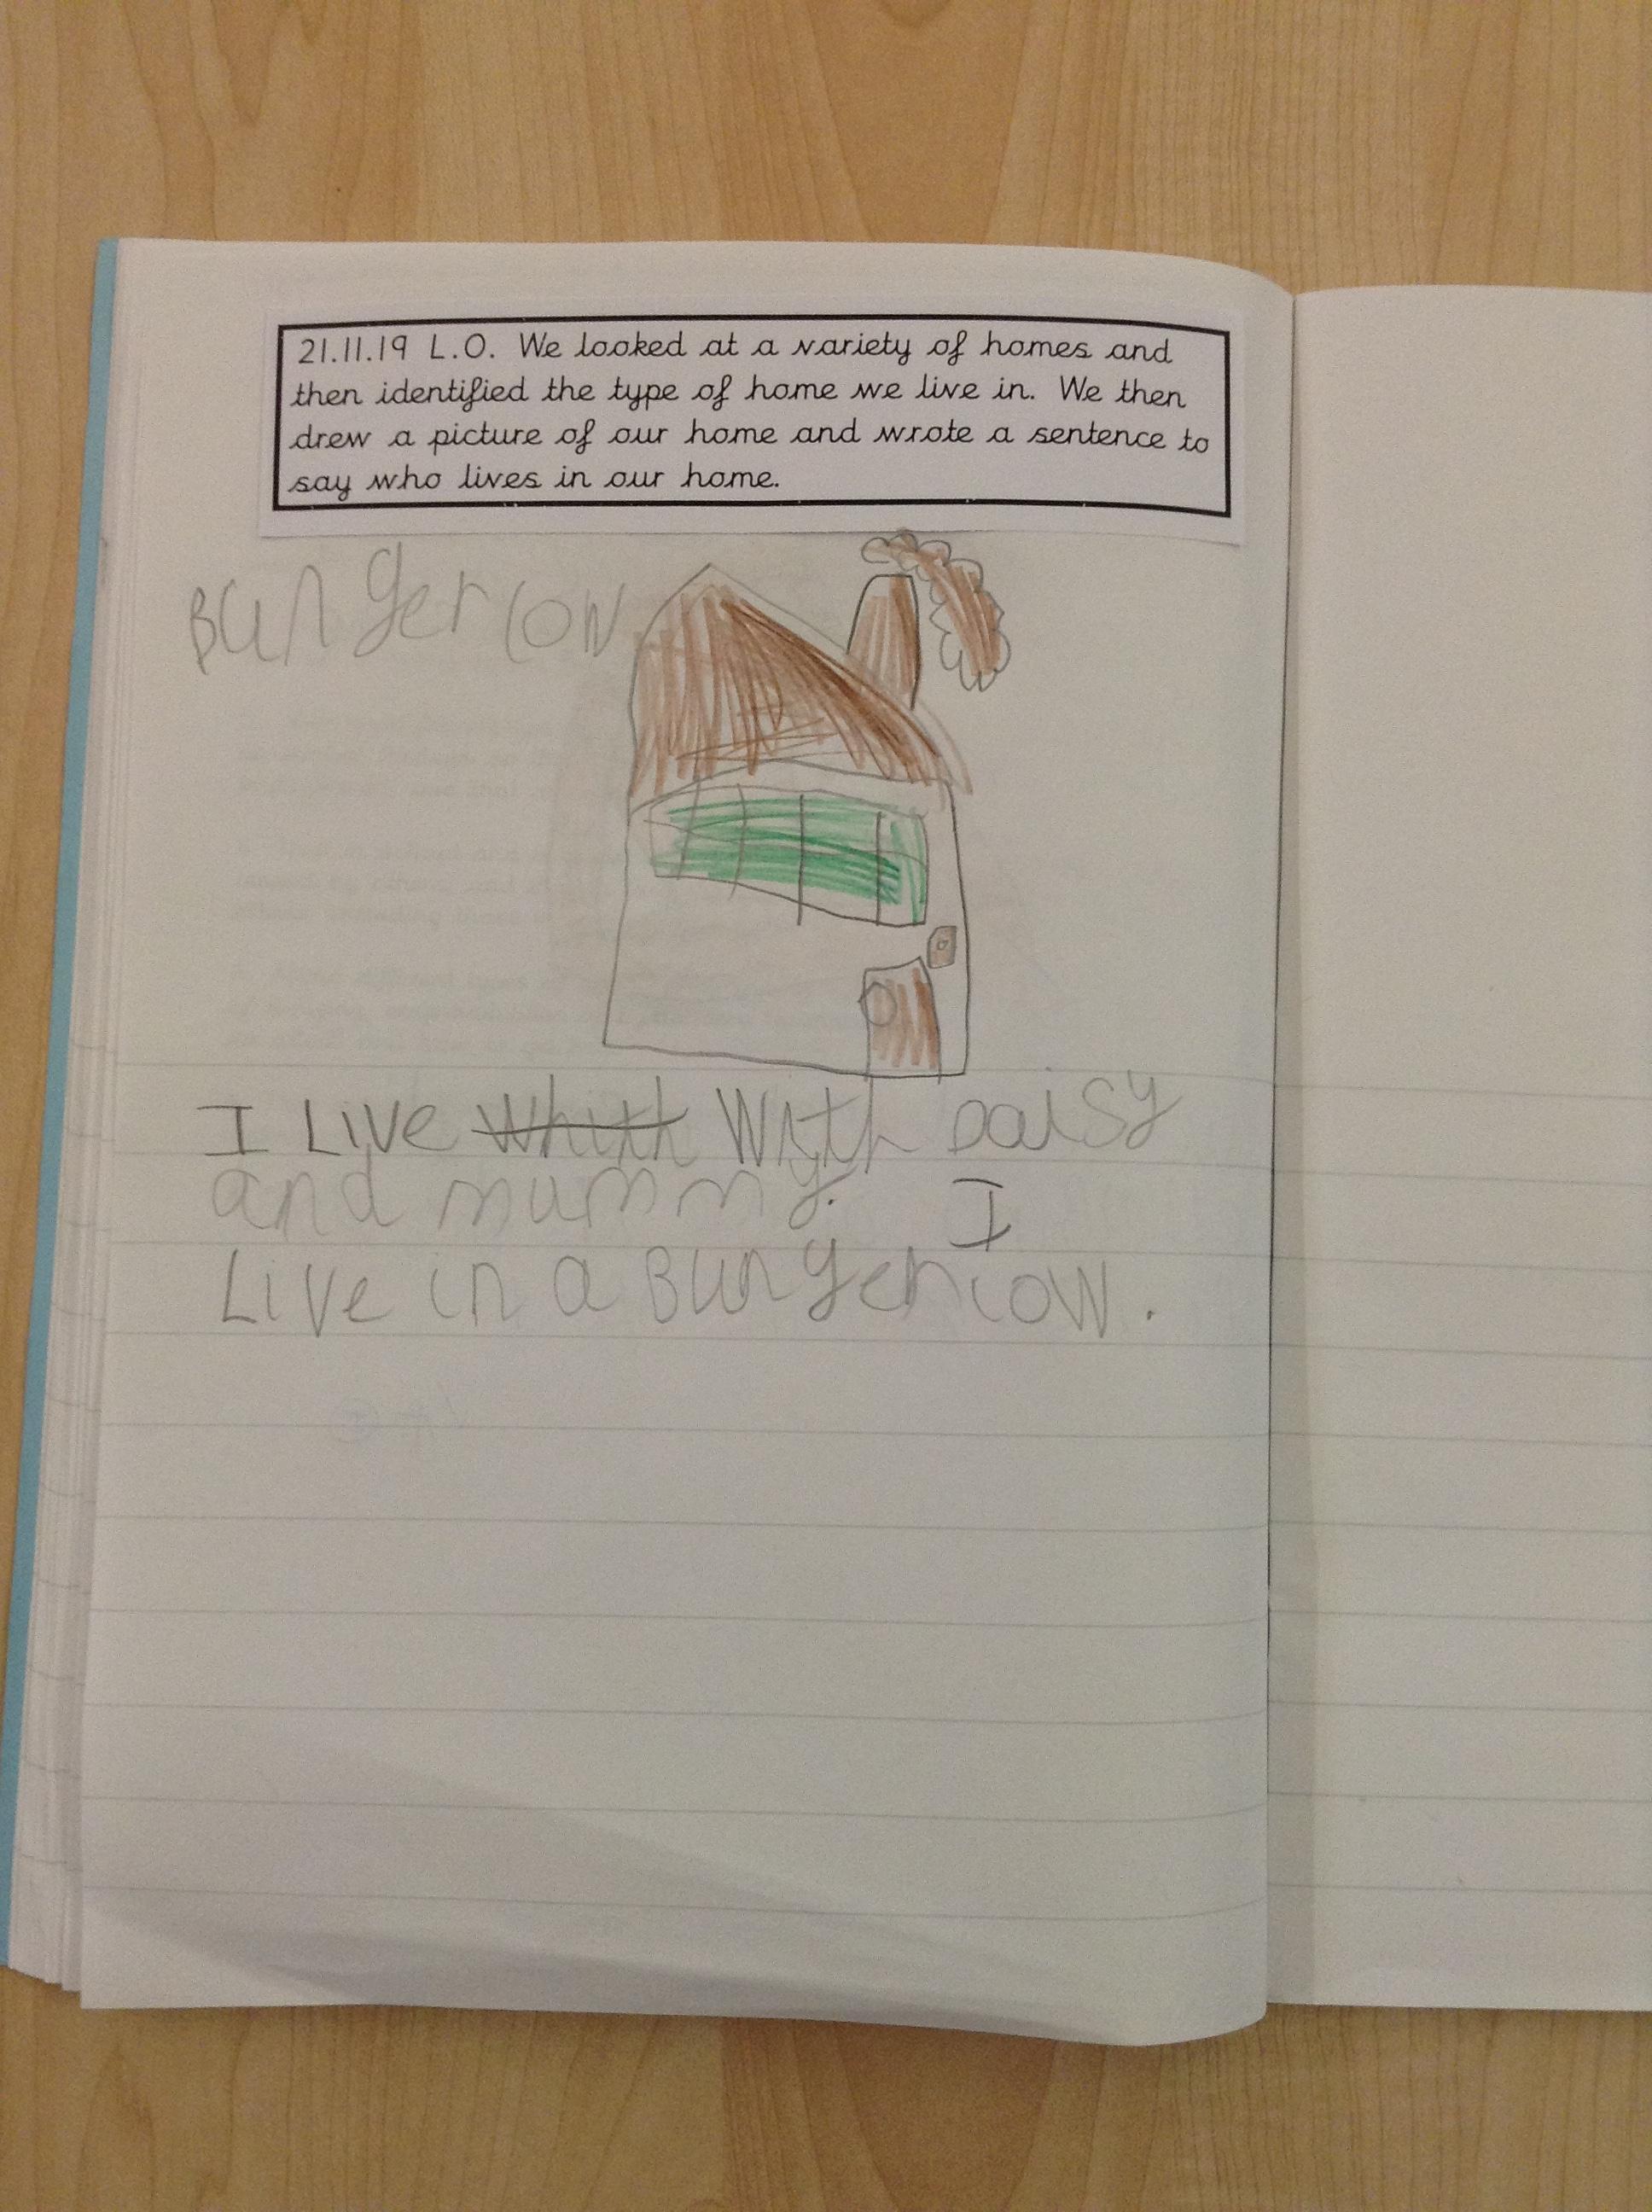 21.11.19 L.O. We looked at a variety of homes and
then identified the type of home we live in. We then
drew a picture of our home and wrote a sentence to
say who lives in our home.
Bungerlow
I Live whith With Daisy
and mummy. I
Live in a Bungerlow.